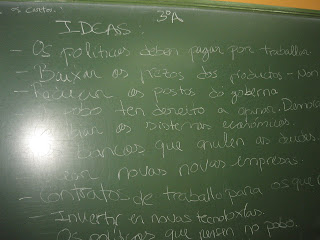 os cartos:
3ºA
IDEAS:
- Os políticos deben pagar por traballar
- Baixar os prezos dos productos - Non
- Reducir os postos do goberno
pobo ten dereito a opinar. Democra
os sistemas económicos.
bancos que anulen as deudas.
novas novas empresas.
- Contratos de traballo para os que
- Invertir en novas tecnoloxías.
Os políticos que pensen no pobo.